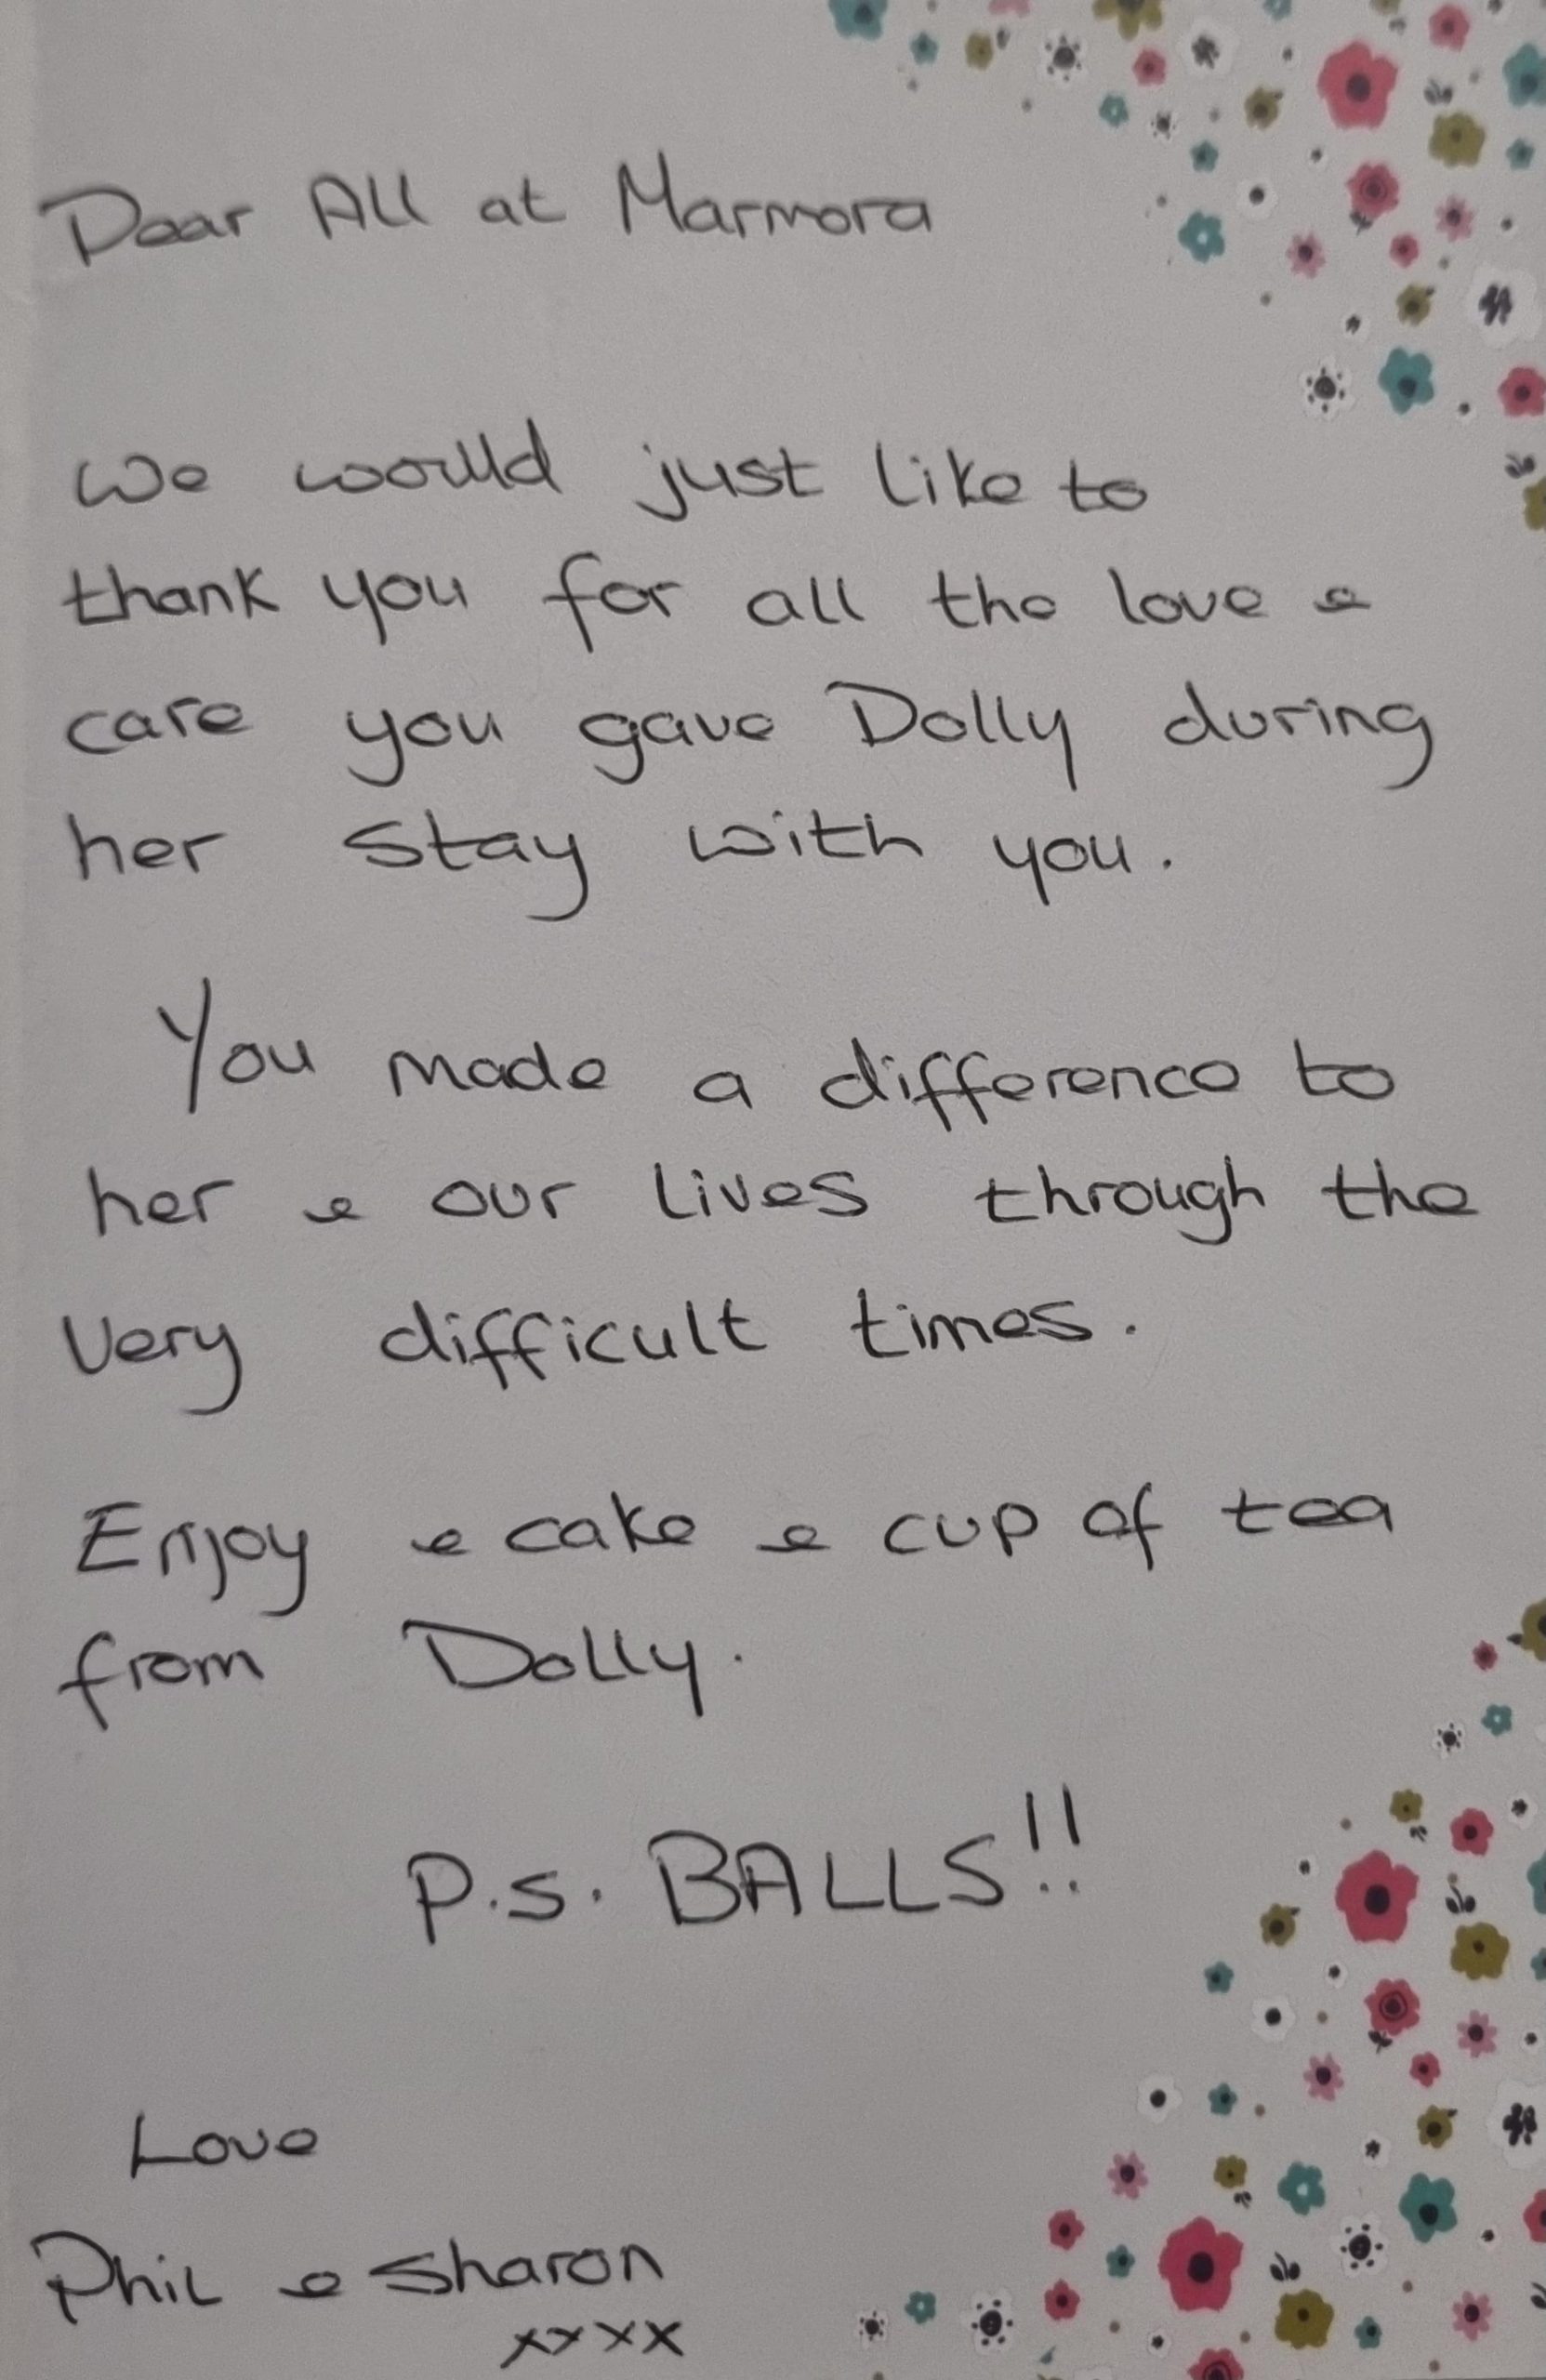 Dear All at Marmora
We would just like to
thank you for all the love &
care you gave Dolly during
her stay with you.
You made a difference to
her & our lives through the
very difficult times.
Enjoy & cake & cup of tea
from Dolly.
P.S. BALLS!!
Love
Phil & Sharon
xxxx